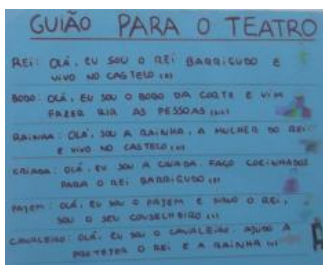 GUIÃO PARA O TEATRO
REI: OLÁ, EU SOU O REI BARRIGUDO E
VIVO NO CASTELO (...)
BOBO: OLÁ, EU SOU O BOBO DA CORTE E VIM
FAZER RIR AS PESSOAS (...)
RAINHA: OLÁ, SOU A RAINHA, A MULHER DO REI
E VIVO NO CASTELO (...)
CRIADA: OLÁ, EU SOU A CRIADA. FAÇO COZINHADOS
PARA O REI BARRIGUDO (...)
PAJEM: OLÁ, EU SOU O PAJEM E SIRVO O REI,
SOU O SEU CONSELHEIRO (...)
CAVALEIRO: OLÁ, EU SOU O CAVALEIRO. AJUDO A
PROTEGER O REI E A RAINHA (...)